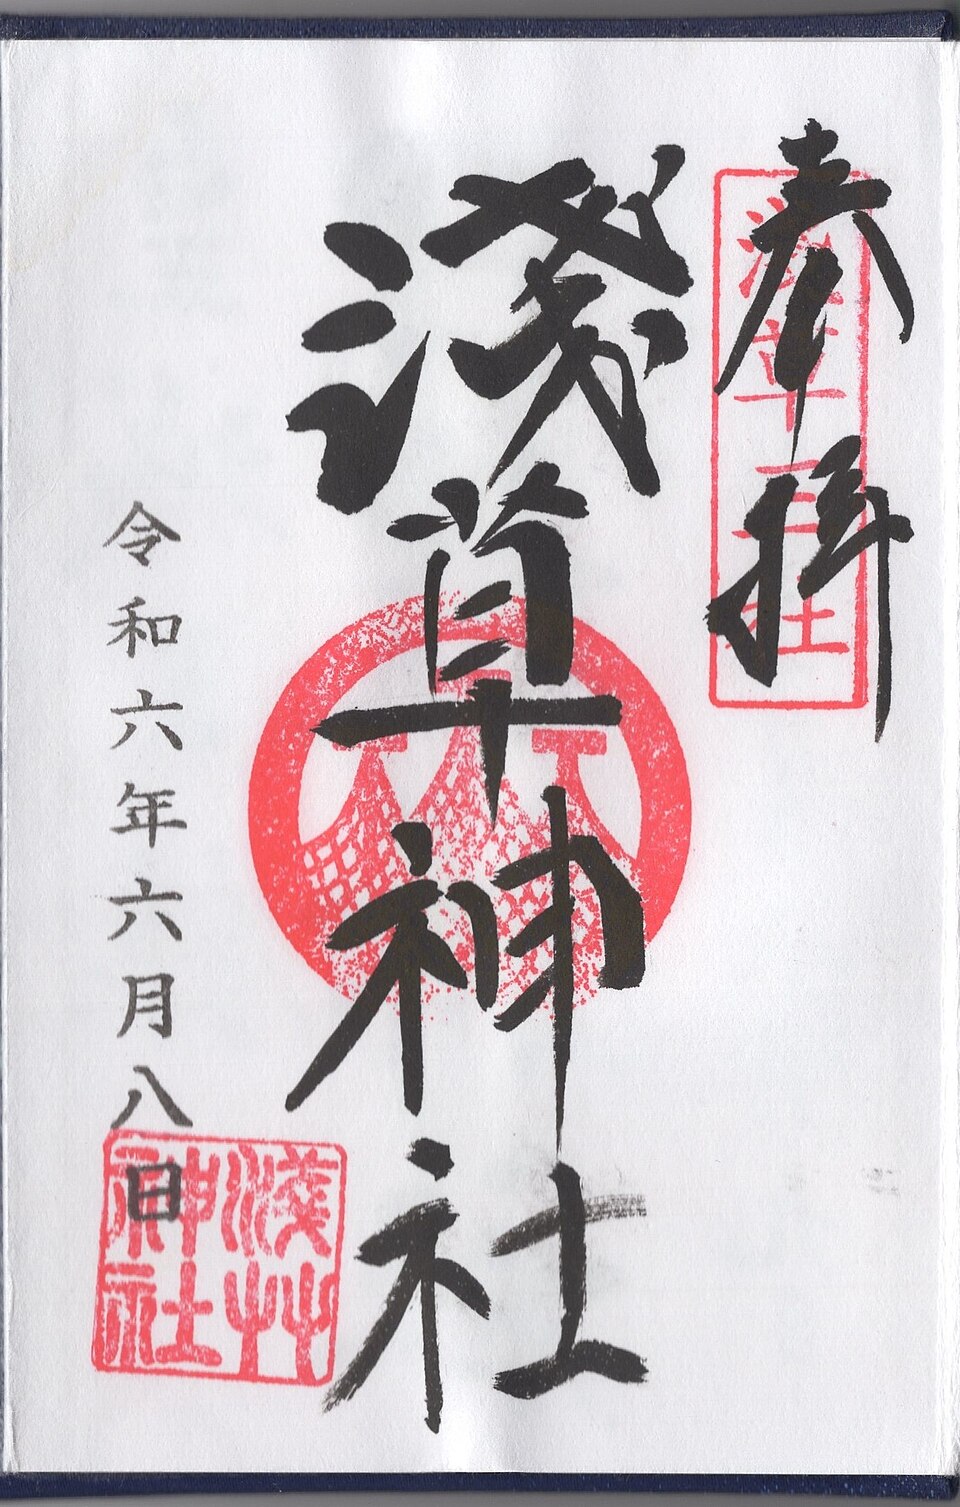 奉拝
淺草三社
淺草神社
令和六年六月八日
淺艸神社